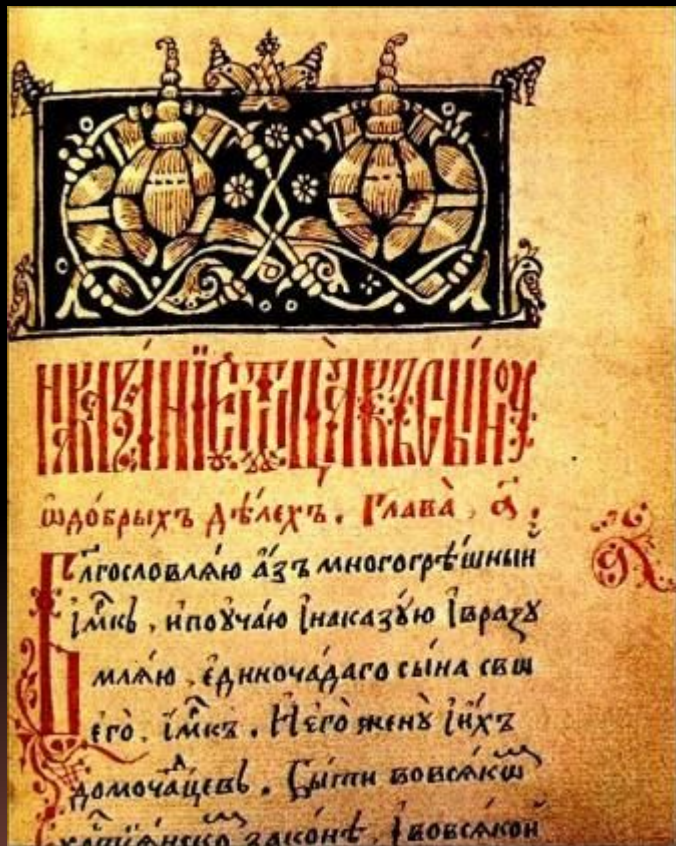 НАКАЗА́НЇЕ Ѿ ОЦА̀ КЪ СЫ́НОУ
ѡдо́брыхъ дѣ́лехъ. Глава̀, а҃.
Бл҃гословлѧ́ю а́зъ многогрѣ́шныи
і҆мкъ, ипоꙋча́ю інаказꙋ́ю івразꙋ
млѧ́ю, единоча́даго сы́на свѡ
его̀. і҆мкъ. Иего̀ женꙋ̀ іи́хъ
домоча́дцевъ. Бы́ти вовсѧкѡ
законѣ, івовсѧкой